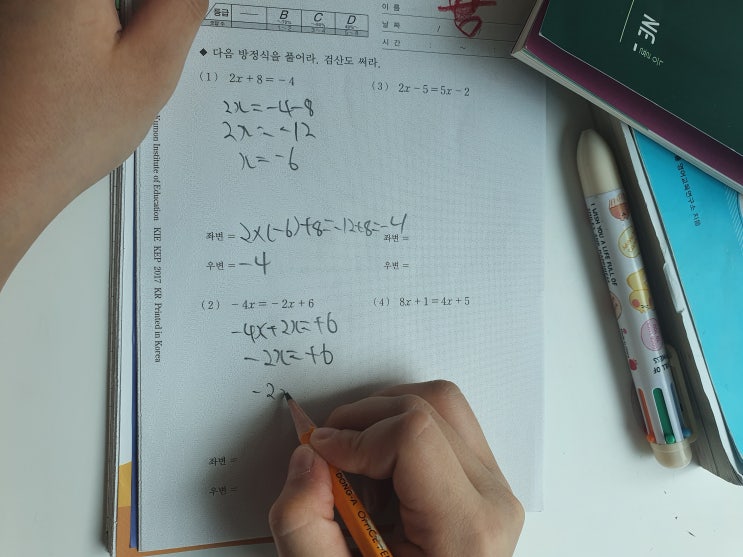 등급 B C D
이 름
날 짜 /
시 간 : ~ :
◆ 다음 방정식을 풀어라. 검산도 써라.
(1) 2x+8=-4
2x=-4-8
2x=-12
x=-6
좌변 = 2×(-6)+8=-12+8=-4
우변 = -4
(2) -4x=-2x+6
-4x+2x=+6
-2x=+6
-2
좌변 =
우변 =
(3) 2x-5=5x-2
좌변 =
우변 =
(4) 8x+1=4x+5
Kumon Institute of Education KIE KEP 2017 KR Printed in Korea
NE
영어교육연구소 지음
I WISH YOU A LIFE FULL OF
DONG-A OFFICE